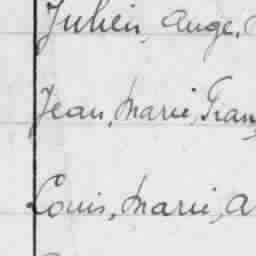 Julien, Ange,
Jean, Marie, Fran
Louis, Marie, A